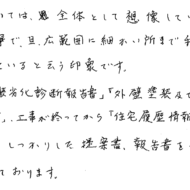 いては、全体として想像してい
事で、且、広範囲に細かい所まで
ていると云う印象です。
劣化診断報告書」「外壁塗装及
、工事が終ってから「住宅履歴情報
しっかりした提案書、報告書を
ております。